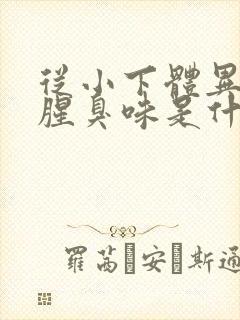 從小下體異
腥臭味是什
羅茜 安 斯通